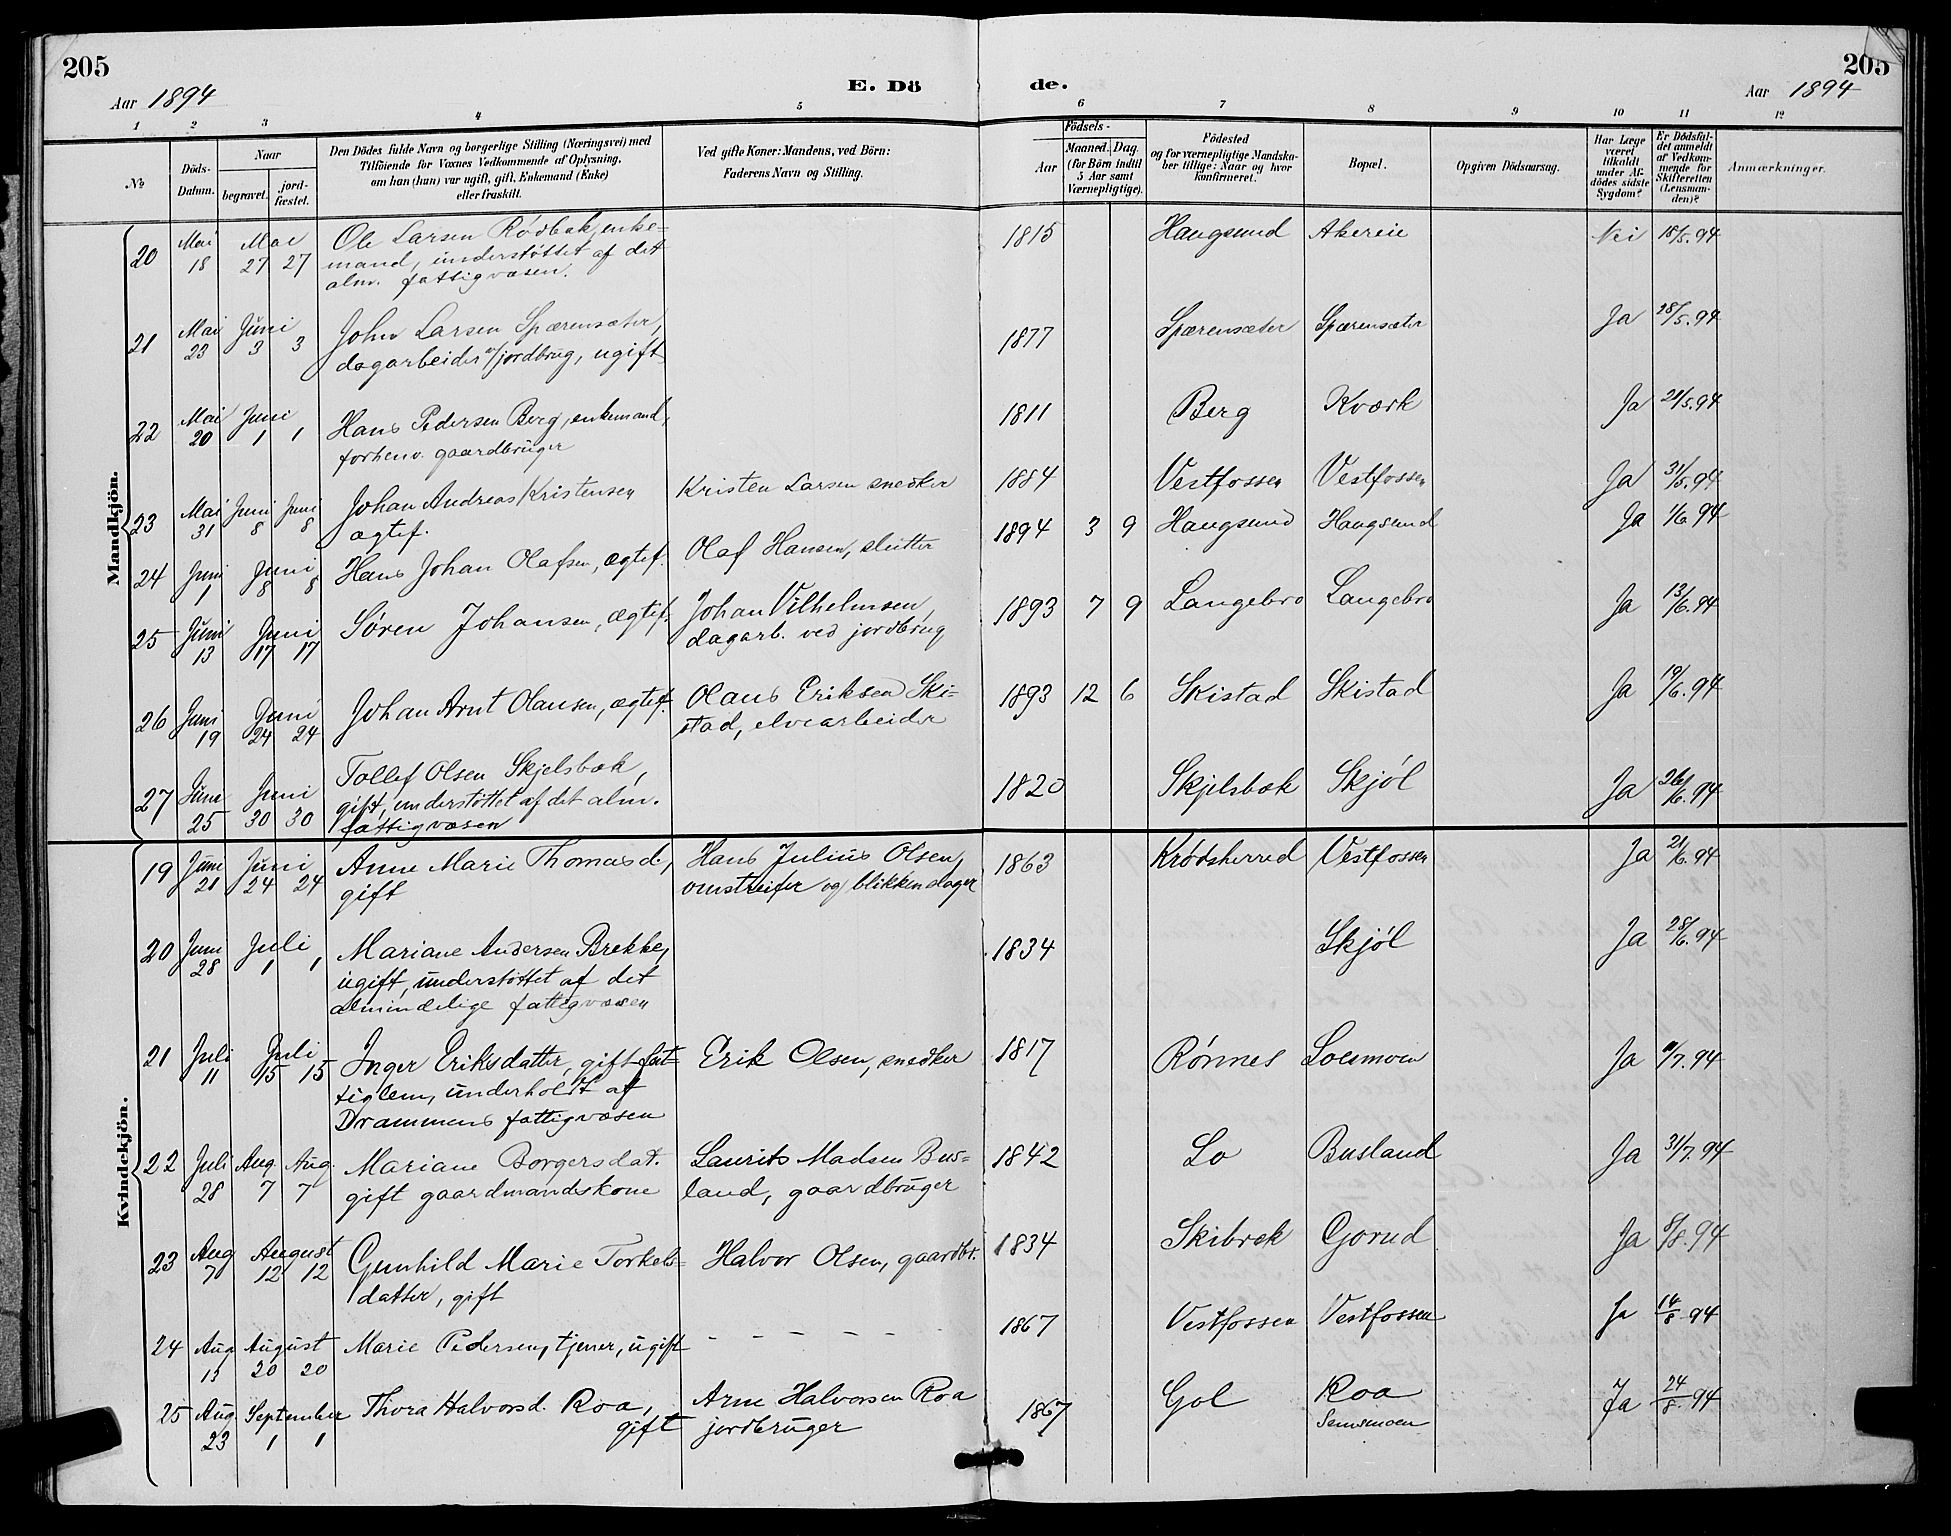 205
Aar 1894
E. Dö
de.
205
Aar 1894
1 2 3 4 5 6 7 8 9 10 11 12
№
Döds-Datum.
Naar
begravet.
jord-fæstet.
Den Dödes fulde Navn og borgerlige Stilling (Næringsvei) med
Tilföiende for Voxnes Vedkommende af Oplysning,
om han (hun) var ugift, gift, Enkemand (Enke)
eller fraskilt.
Ved gifte Koner: Mandens, ved Börn:
Faderens Navn og Stilling.
Födsels-
Aar
Maaned. Dag.
(for Börn indtil
5 Aar samt
Værnepligtige).
Födested
og for værnepligtige Mandska-
ber tillige: Naar og hvor
konfirmeret.
Bopæl.
Opgiven Dödsaarsag.
Har Læge
været
tilkaldt
under Af-
dödes sidste
Sygdom?
Er Dödsfal-
det anmeldt
af Vedkom-
mende for
Skifteretten
(Lensman-
den)?
Anmærkninger.
Mandkjön.
20 Mai 18 Mai 27 27 Ole Larsen Rödbak, enke-
mand, understöttet af det
alm. fattigvæsen.
1815 Haugsund Akereie Nei 18/5.94
21 Mai 23 Juni 3 3 John Larsen Spærensæter,
dagarbeider v/jordbrug, ugift
1877 Spærensæter Spærensæter Ja 28/5.94
22 Mai 20 Juni 1 1 Hans Pedersen Berg, enkemand,
forhenv. gaardbruger
1811 Berg Kværk Ja 21/5.94
23 Mai 31 Juni 8 Juni 8 Johan Andreas Kristensen
ægtef.
Kristen Larsen snedker 1884 Vestfossen Vestfossen Ja 31/5.94
24 Juni 1 Juni 8 8 Hans Johan Olafsen, ægtef. Olaf Hansen, slutter 1894 3 9 Haugsund Haugsund Ja 1/6.94
25 Juni 13 Juni 17 17 Sören Johansen, ægtef. Johan Vilhelmsen,
dagarb. ved jordbrug
1893 7 9 Langebro Langebro Ja 13/6.94
26 Juni 19 Juni 24 24 Johan Arnt Olausen, ægtef. Olaus Eriksen Ski-
stad, elvearbeider
1893 12 6 Skistad Skistad Ja 19/6.94
27 Juni 25 Juni 30 30 Tollef Olsen Skjelsbæk,
gift, understöttet af det alm.
fattigvæsen
1820 Skjelsbæk Skjöl Ja 26/6.94
Kvindekjön.
19 Juni 21 Juni 24 24 Anne Marie Thomasd.,
gift
Hans Julius Olsen,
omstreifer og blikkenslager
1863 Krødsherred Vestfossen Ja 21/6.94
20 Juni 28 Juli 1 1 Mariane Andersen Brekke,
ugift, understöttet af det
almindelige fattigvæsen
1834 Skjöl Ja 28/6.94
21 Juli 11 Juli 15 15 Inger Eriksdatter, gift fat-
tiglem, underholdt af
Drammens fattigvæsen
Erik Olsen, snedker 1817 Rönnes Loesmoen Ja 11/7.94
22 Juli 28 Aug 7 Aug. 7 Mariane Borgersdat.
gift gaardmandskone
Laurits Madsen Bus-
land, gaardbruger
1842 Lo Busland Ja 31/7.94
23 Aug 7 August 12 12 Gunhild Marie Torkels-
datter, gift
Halvor Olsen, gaardbr. 1834 Skibræk Gorud Ja 8/8.94
24 Aug 13 August 20 20 Marie Pedersen, tjener, ugift - - - - - - 1867 Vestfossen Vestfossen Ja 14/8 94
25 Aug 23 September 1 1 Thora Halvorsd. Roa,
gift
Arne Halvorsen Roa
jordbruger
1867 Gol Roa
Semsmoen
Ja 24/8 94